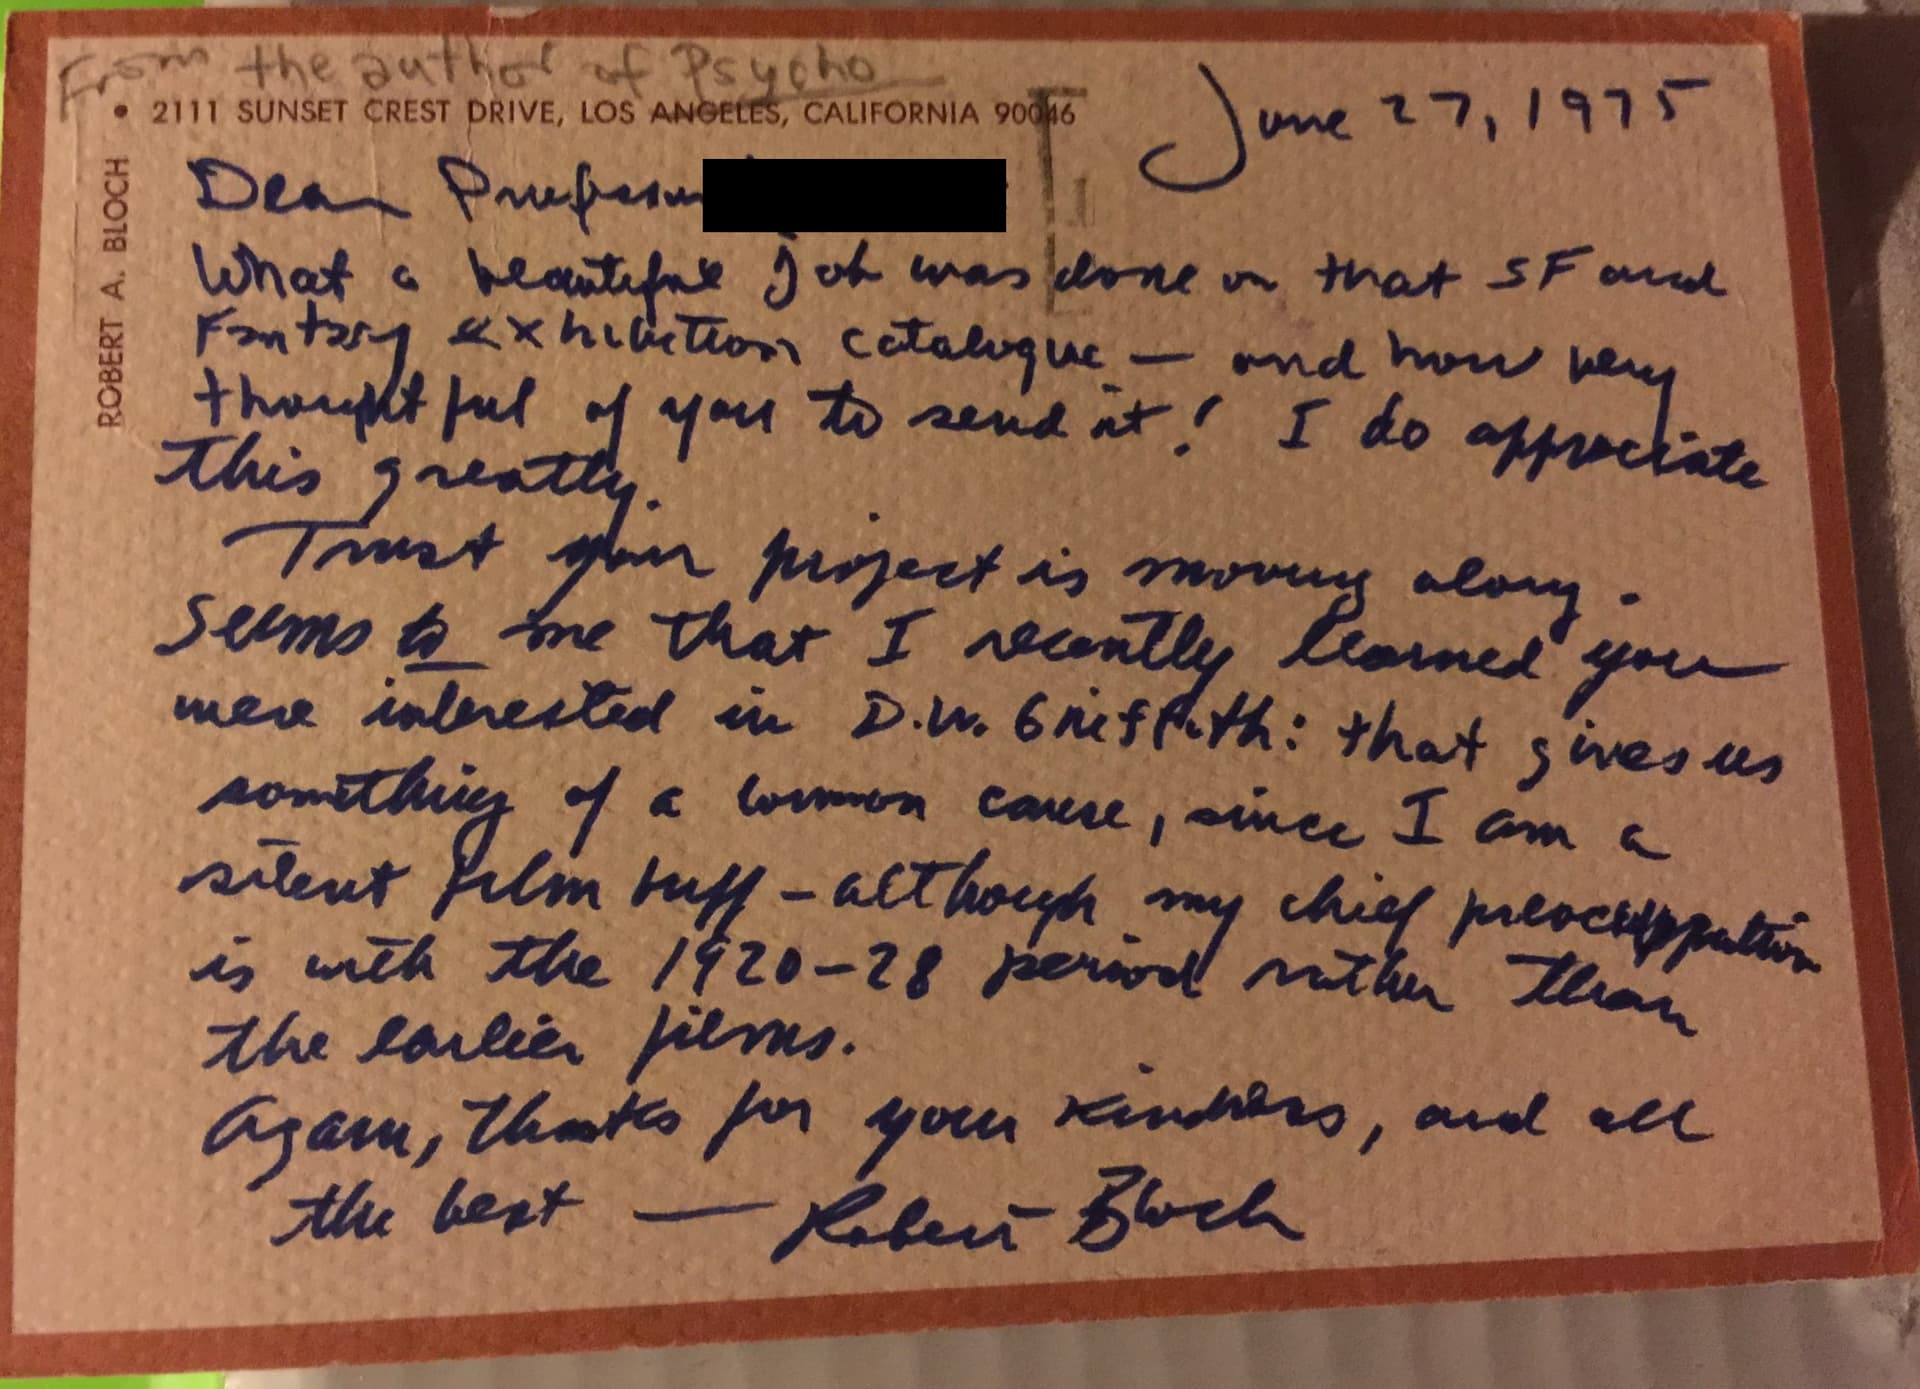 From the author of Psycho
• 2111 SUNSET CREST DRIVE, LOS ANGELES, CALIFORNIA 90046
ROBERT A. BLOCH
June 27, 1975
Dear Professor
What a beautiful job was done on that SF and
Fantasy exhibition catalogue — and how very
thoughtful of you to send it! I do appreciate
this greatly.
Trust your project is moving along.
Seems to me that I recently learned you
were interested in D.W. Griffith: that gives us
something of a common cause, since I am a
silent film buff – although my chief preoccuppation
is with the 1920–28 period rather than
the earlier films.
Again, thanks for your kindness, and all
the best — Robert Bloch